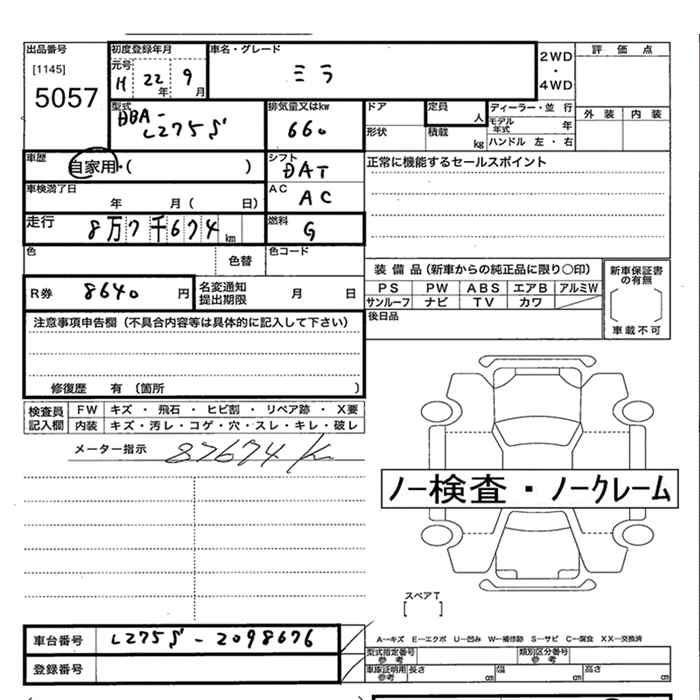 出品番号
[1145]
5057
初度登録年月
元号
H 22年 9月
車名・グレード
ミラ
2WD
・
4WD
評価点
外装 内装
型式
DBA-
L275S
排気量又はkw
660
ドア
形状
定員
人
積載
kg
ディーラー・並行
モデル年式 年
ハンドル 左・右
車歴
自家用・( )
シフト
DAT
正常に機能するセールスポイント
車検満了日
年 月( 日)
AC
AC
走行
8万7千674km
燃料
G
色
色替
色コード
R券 8640円
名変通知
提出期限
月 日
装備品(新車からの純正品に限り○印)
PS PW ABS エアB アルミW
サンルーフ ナビ TV カワ
新車保証書
の有無
[ ]
車載不可
後日品
注意事項申告欄(不具合内容等は具体的に記入して下さい)
修復歴 有(箇所 )
検査員
記入欄
FW キズ・飛石・ヒビ割・リペア跡・X要
内装 キズ・汚レ・コゲ・穴・スレ・キレ・破レ
メーター指示 87674K
ノー検査・ノークレーム
スペアT
[ ]
車台番号 L275S-2098676
登録番号
A―キズ E―エクボ U―凹み W―補修跡 S―サビ C―腐食 XX―交換済
型式指定番号
参考
類別区分番号
参考
車庫証明用
参考
長さ cm
幅 cm
高さ cm